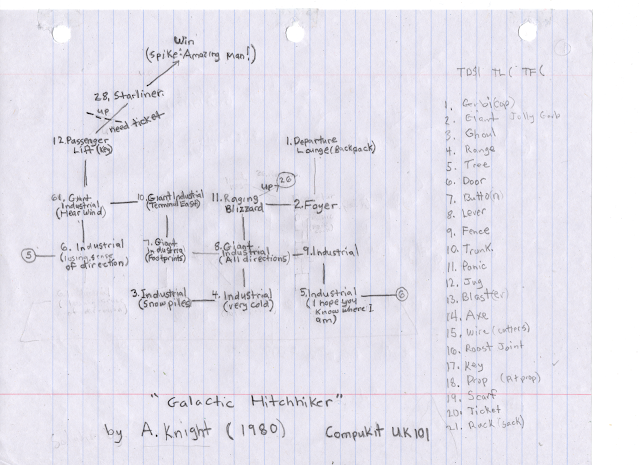 Win
(Spike: Amazing Man!)
28. Starliner
up
need ticket
12. Passenger
Lift (Key)
1. Departure
Lounge (Backpack)
up
26
Giant
Industrial
(Hear Wind)
10. Giant Industrial
(Terminal East)
11. Raging
Blizzard
2. Foyer
5
6. Industrial
(losing sense
of direction)
7. Giant
Industrial
(Footprints)
8. Giant
Industrial
(All directions)
9. Industrial
3. Industrial
(Snow piles)
4. Industrial
(very cold)
5. Industrial
(I hope you
know where I
am)
"Galactic Hitchhiker"
by A. Knight (1980) Compukit UK101
1.
2. Giant Jolly
3. Ghoul
4. Range
5. Tree
6. Door
7. Button
8. Lever
9. Fence
10. Trunk
11. Panic
12. Jug
13. Blaster
14. Axe
15. Wire (cutters)
16. Roast Joint
17. Key
18. Prop
19. Scarf
20. Ticket
21. Ruck (sack)